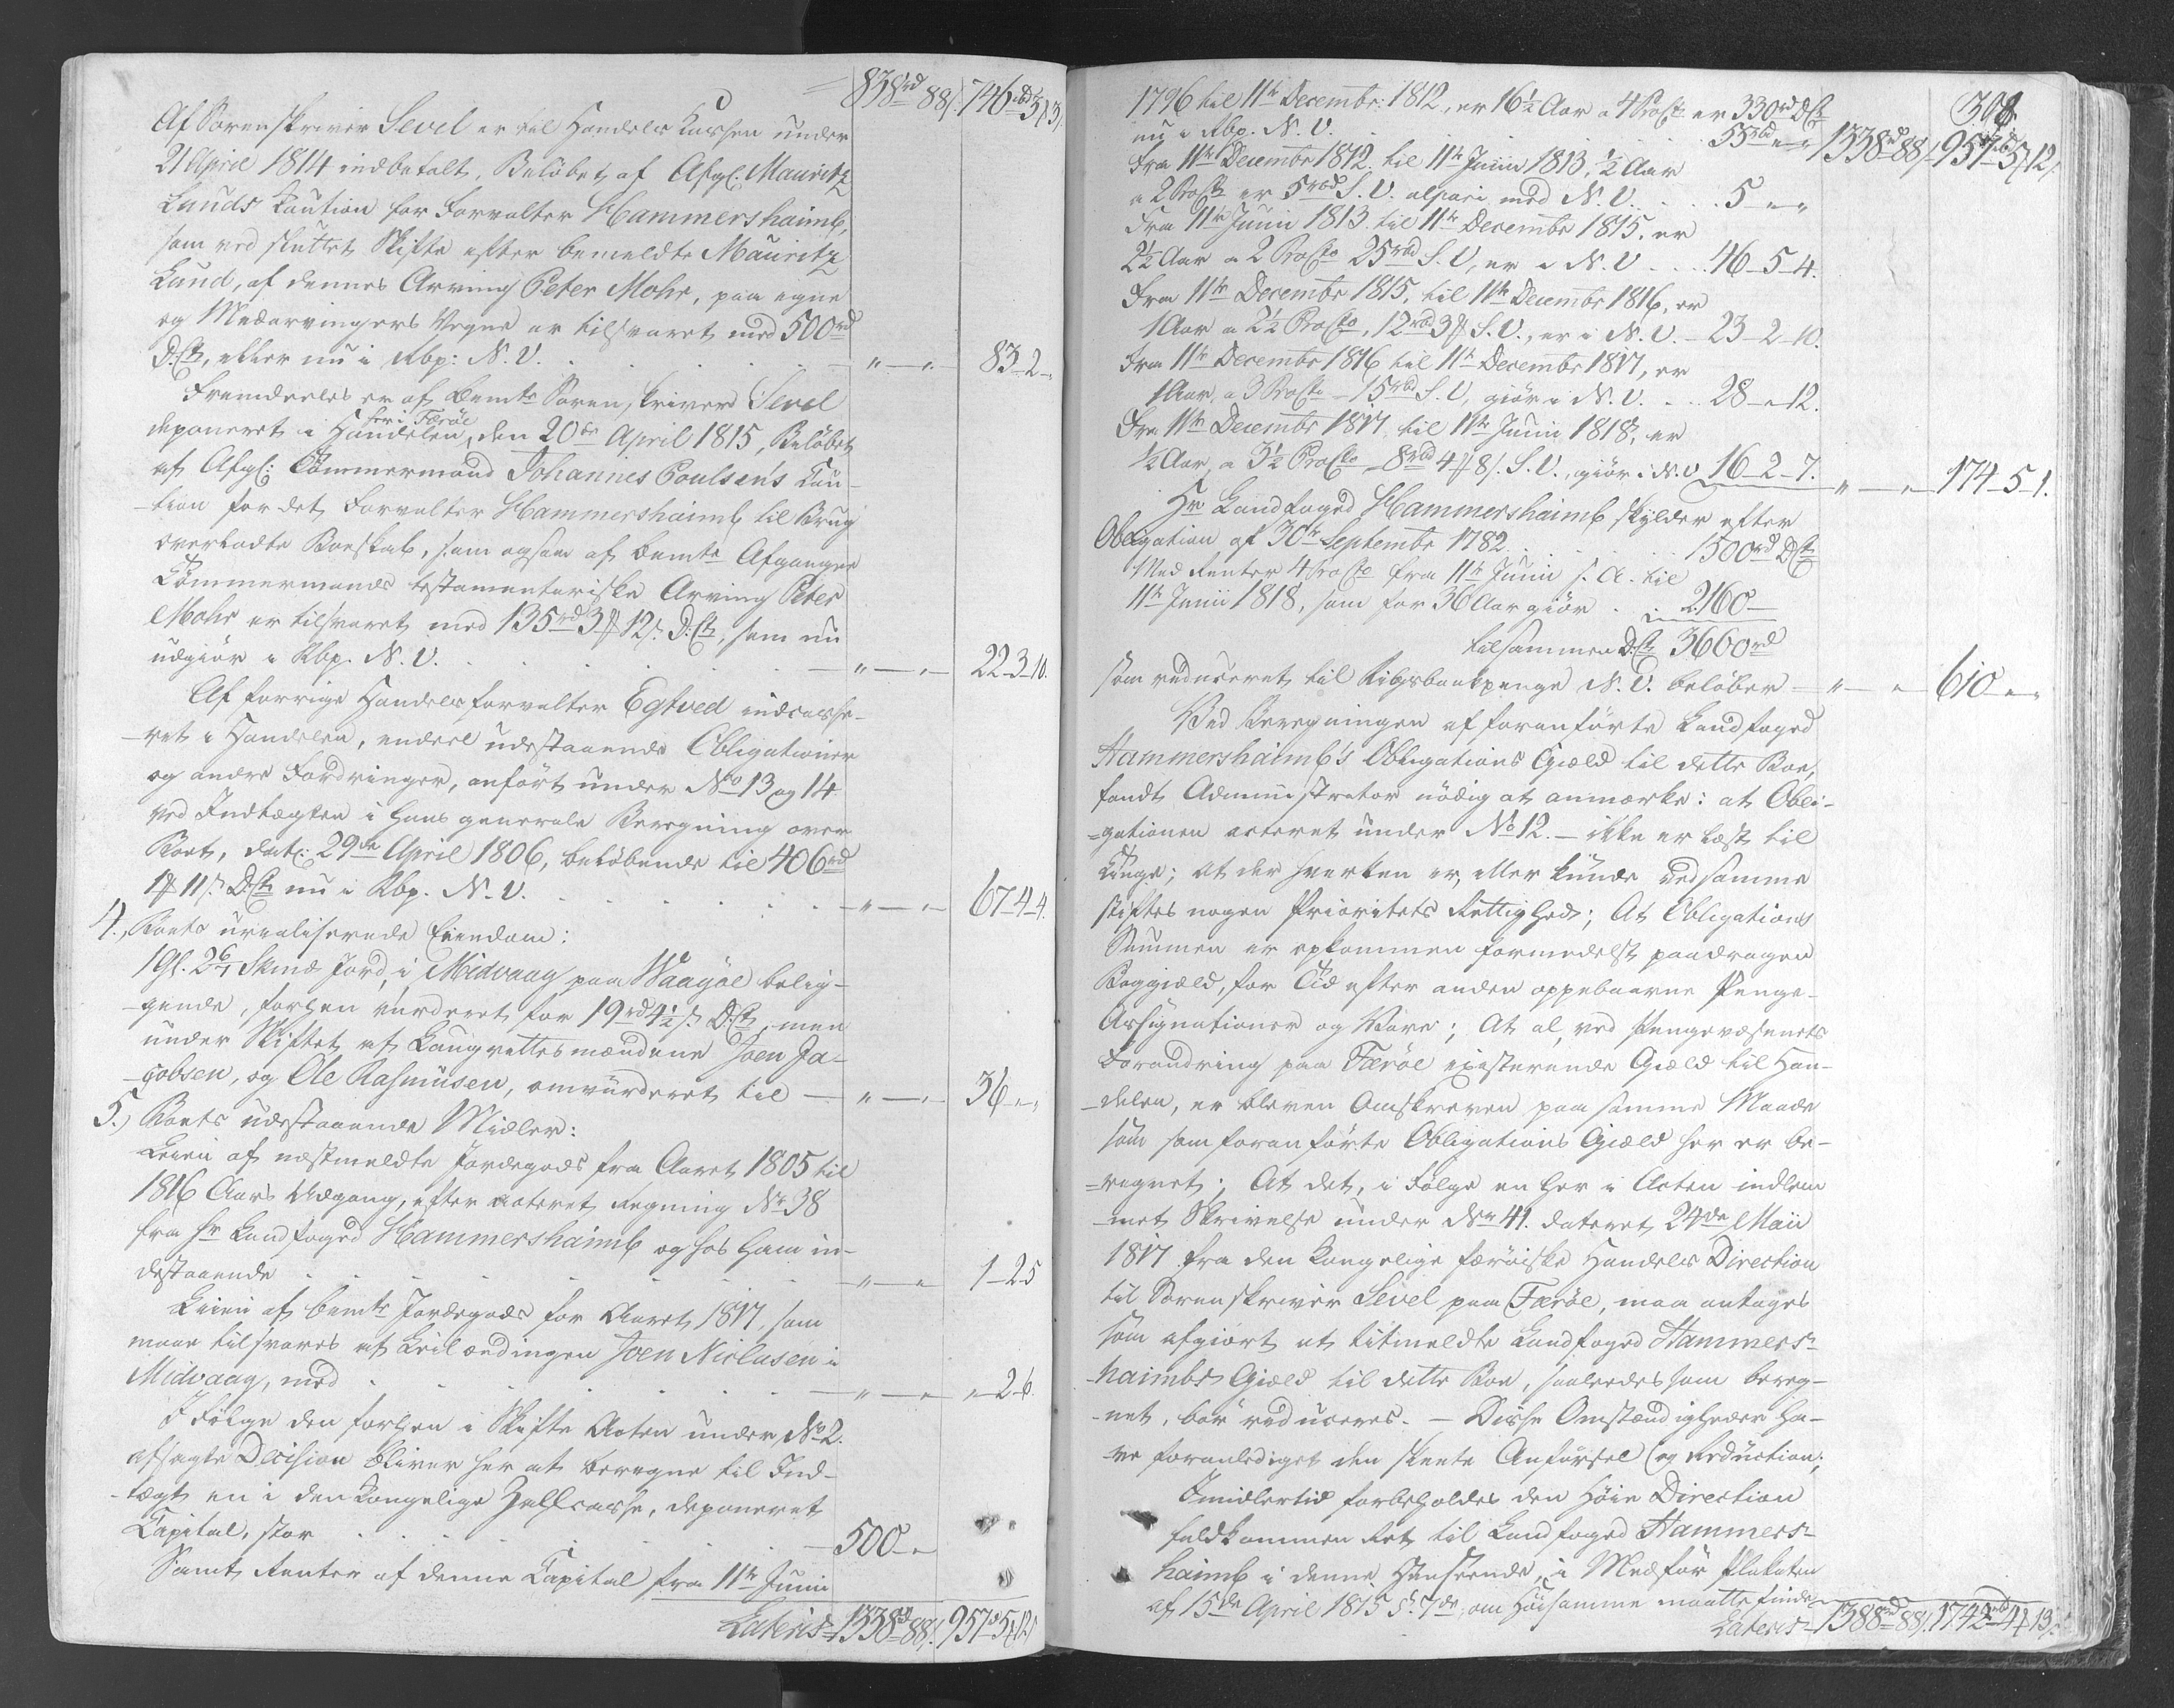 838rd 88/. 746rbd 3#3/.
Af Sorenskriver Sevel er til Handels Kassen under
21 April 1814 indbetalt, Beløbet af Afgl: Mauritz
Lunds Kaution for Forvalter Hammershaimb,
som ved sluttet Skifte efter bemeldte Mauritz
Lund, af dennes Arving Peter Mohr, paa egne
og Medarvingers Vegne er tilsvaret med 500rd
D:Ct, eller nu i Rbp: N. V. . . . „ — „ — 83-2-„
Fremdeeles er af bemte Sorenskriver Sevel
deponeret i Handelen her i Færøe, den 20de April 1815, Beløbet
af Afgl: Tømmermand Johannes Poulsen's Kau-
-tion for det Forvalter Hammershaimb til Brug
overladte Boeskab, som ogsaa af bemte Afgangne
Tømmermands testamentariske Arving Peter
Mohr er tilsvaret med 135rd 3# 12/. D:Ct, som nu
udgiör i Rbp. N. V. . . . „ — „ — 22-3-10.
Af forrige Handelsforvalter Egtved indcasse-
-ret i Handelen, endeel udestaaende Obligationer
og andre Fordringer, anført under No 13 og 14
ved Indtægten i hans generale Beregning over
Boet, dat: 29de April 1806, beløbende til 406rd
1# 11/. D:Ct nu i Rbp. N. V. . . . „ — „ — 67-4-4.
4., Boets urealiserede Eiendom:
1 Gl. 2 6/7 Skind Jord, i Midvaag paa Waagöe belig-
-gende, forhen vurderet for 19rd 4½/. D:Ct, men
under Skiftet af Laugrettesmændene Joen Ja-
-cobsen, og Ole Rasmusen, omvurderet til — „ — „ — 36-„-„
5.) Boets udestaaende Midler:
Leien af næstmeldte Jordegods fra Aaret 1805 til
1816 Aars Udgang, efter acteret Regning No 38
fra Hr Landfoged Hammershaimb og hos ham in-
destaaende . . . „ — „ 1-2-5
Leien af bemte Jordegods for Aaret 1817, som
maae tilsvares af Leilændingen Joen Niclasen i
Midvaag, med . . . „ — „ „-2-6.
I Følge den forhen i Skifte Acten under No 2.
afsagte Decision bliver her at beregne til Ind-
-tægt en i den Kongelige Zahlcasse, deponeret
Capital, stor . . . 500-„
Samt Renter af denne Capital fra 11te Junii
Lateris 1338rd 88/. 957rd 5#12/.
308
1796 til 11te Decembr: 1812, er 16½ Aar a 4 ProCto er 330rd D:Ct
nu i Rbp. N. V. . . . 55rbd „ „ 1338rd 88/. 957rbd 5#12/.
Fra 11te Decembr 1812 til 11te Junii 1813, ½ Aar
a 2 ProCto er 5rbd S. V. alpari med N. V. . . . 5 „ „
Fra 11te Junii 1813 til 11te Decembr 1815, er
2½ Aar a 2 ProCto 25rbd S. V, er i N. V . . . 46-5-4.
Fra 11te Decembr 1815, til 11te Decembr 1816, er
1 Aar a 2½ ProCto, 12rbd 3# S. V., er i N. V. - 23-2-10.
Fra 11te Decembr 1816 til 11te Decembr 1817, er
1 Aar, a 3 ProCto - 15rbd S. V, giör i N. V. . . 28-„-12.
Fra 11te Decembr 1817 til 11te Junii 1818, er
½ Aar, a 3½ ProCto 8rbd 4#8/. S. V., giör i N. V 16-2-7. „ — „ — 174-5-1.
Hr Landfoged Hammershaimb skylder efter
Obligation af 30te Septembr 1782 . . . 1500rd D:Ct
Med Renter 4 ProCto fra 11te Junii s. A. til
11te Junii 1818, som for 36 Aar giör . . 2160 —
tilsammen D:Ct 3660rd
som reduceret til Rigsbankpenge N. V. beløber — „ — „ — 610-„-„
Ved Beregningen af foranførte Landfoged
Hammershaimb's Obligations Gjæld til dette Boe,
fandt Administrator nödig at anmærke: at Obli-
-gationen acteret under No 12. — ikke er læst til
Tinge; at der hverken er, eller kunde ved samme
stiftes nogen Prioritets Rettighed; At Obligations
Summen er opkommen formedelst paadragen
Boggiæld, for Tid efter anden oppebaarne Penge-
Assignationer og Vare; At al, ved Pengevæsenets
Forandring paa Færöe existerende Gjæld til Han-
-delen, er bleven Omskreven paa samme Maade
som som foranførte Obligations Gjæld her er be-
-regnet; At det, i Følge en her i Acten indlem-
-met Skrivelse under No 41. dateret 24de Maii
1817 fra den Kongelige færöiske Handels Direction
til Sorenskriver Sevel paa Færöe, maa antages
som afgiort at titmeldte Landfoged Hammers-
haimbs Gjæld til dette Boe, saaledes som bereg-
-net, bör reduceres. — Disse Omstændigheder ha-
-ve foranlediget den skeete Anförsel og Reduction.
Imidlertid forbeholdes den Höie Direction
fuldkommen Ret til Landfoged Hammers-
haimb i denne Henseende, i Medför Plakaten
af 15de April 1815 §. 7de, om Höisamme maatte finde
Lateris 1388rd 88/. 1742rbd 4#13/.